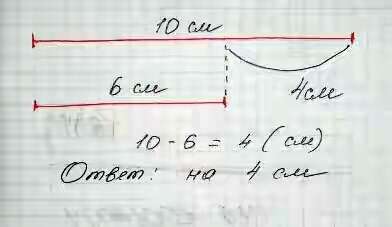 10 см
6 см
4см
10 - 6 = 4 (см)
Ответ: на 4 см